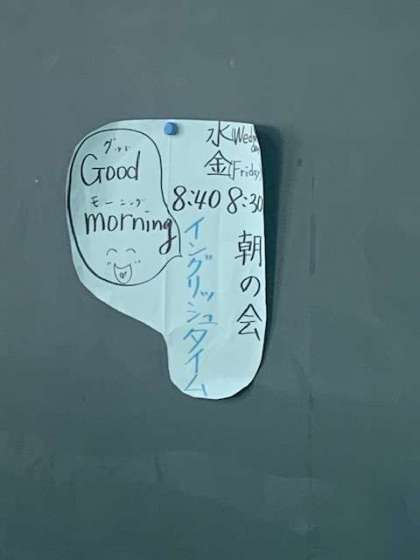 水(Wed
金(Friday)
8:30
朝の会
8:40
イングリッシュタイム
グッド
Good
モーニング
morning